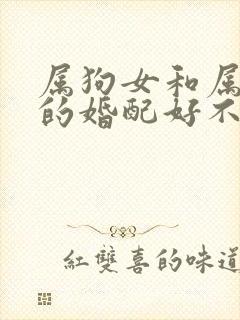 属狗女和属
的婚配好不
红雙喜的味道